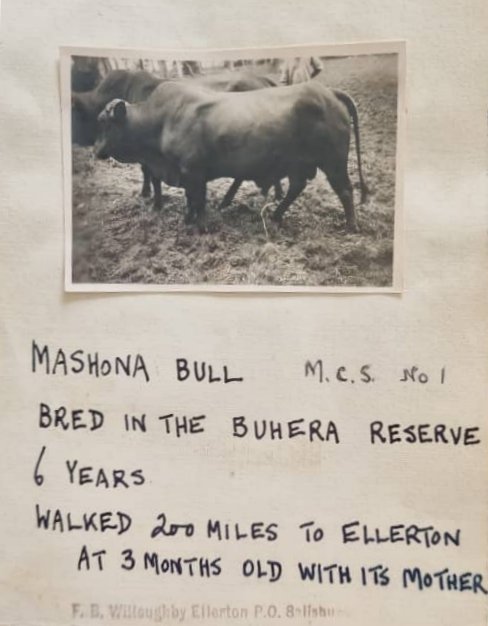 MASHONA BULL M.C.S. No 1
BRED IN THE BUHERA RESERVE
6 YEARS
WALKED 200 MILES TO ELLERTON
AT 3 MONTHS OLD WITH ITS MOTHER
F. B. Willoughby Ellerton P.O.